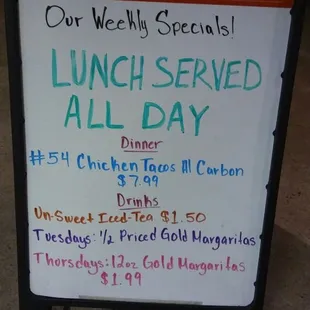 Our Weekly Specials!
LUNCH SERVED
ALL DAY
Dinner
#54 Chicken Tacos Al Carbon
$7.99
Drinks
Un-Sweet Iced-Tea $1.50
Tuesdays: 1/2 Priced Gold Margaritas
Thursdays: 12oz Gold Margaritas
$1.99